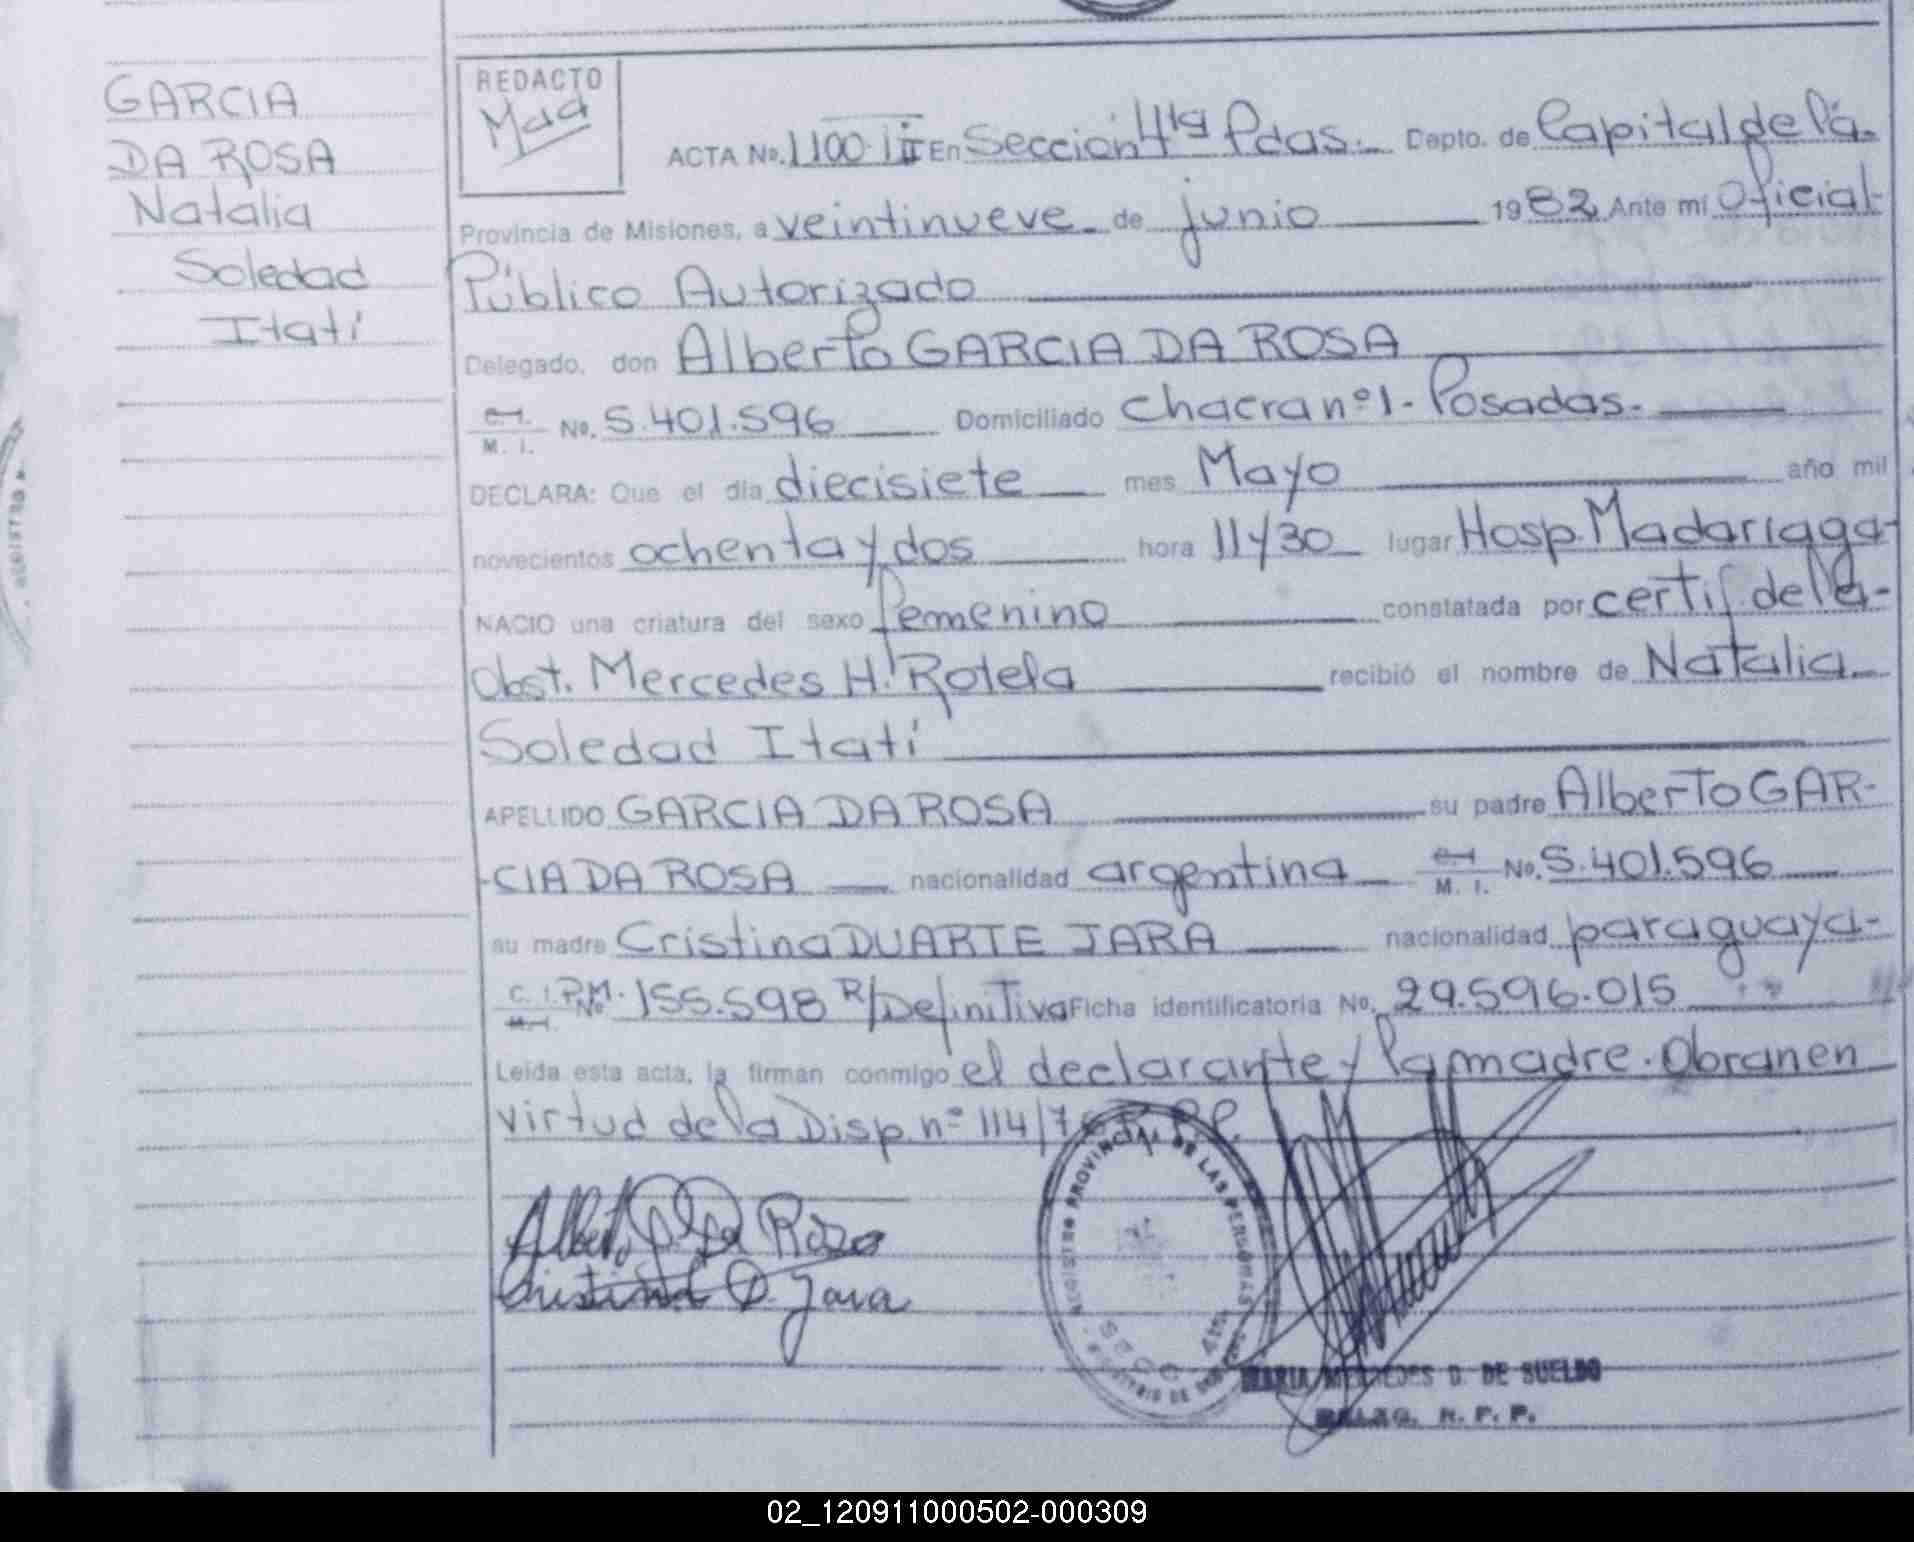 GARCIA
DA ROSA
Natalia
Soledad
Itatí
REDACTO
ACTA No. 1100 En Sección 4ta Pdas. Depto. de Capital de la
Provincia de Misiones, a veintinueve de junio 1982 Ante mi Oficial
Público Autorizado
Delegado, don Alberto GARCIA DA ROSA
C. I. M. I. No. 5.401.596 Domiciliado Chacra nº 1 - Posadas.
DECLARA: Que el día diecisiete mes Mayo año mil
novecientos ochenta y dos hora 11 y 30 lugar Hosp. Madariaga-
NACIO una criatura del sexo femenino constatada por certif. de la-
Obst. Mercedes H. Rotela recibió el nombre de Natalia
Soledad Itatí
APELLIDO GARCIA DA ROSA su padre Alberto GAR-
-CIA DA ROSA nacionalidad argentina M. I. No. 5.401.596
su madre Cristina DUARTE JARA nacionalidad paraguaya-
C. I. P.M. No. 155.598 R/Definitiva Ficha identificatoria No. 29.596.015
Leída esta acta, la firman conmigo el declarante y la madre. Obran en
virtud de la Disp. nº 114/76 R.P.P.
Alberto G. Da Rosa
Cristina D. Jara
REGISTRO PROVINCIAL DE LAS PERSONAS
MARIA MERCEDES D. DE SUELDO
DELEG. R. P. P.
02_120911000502-000309